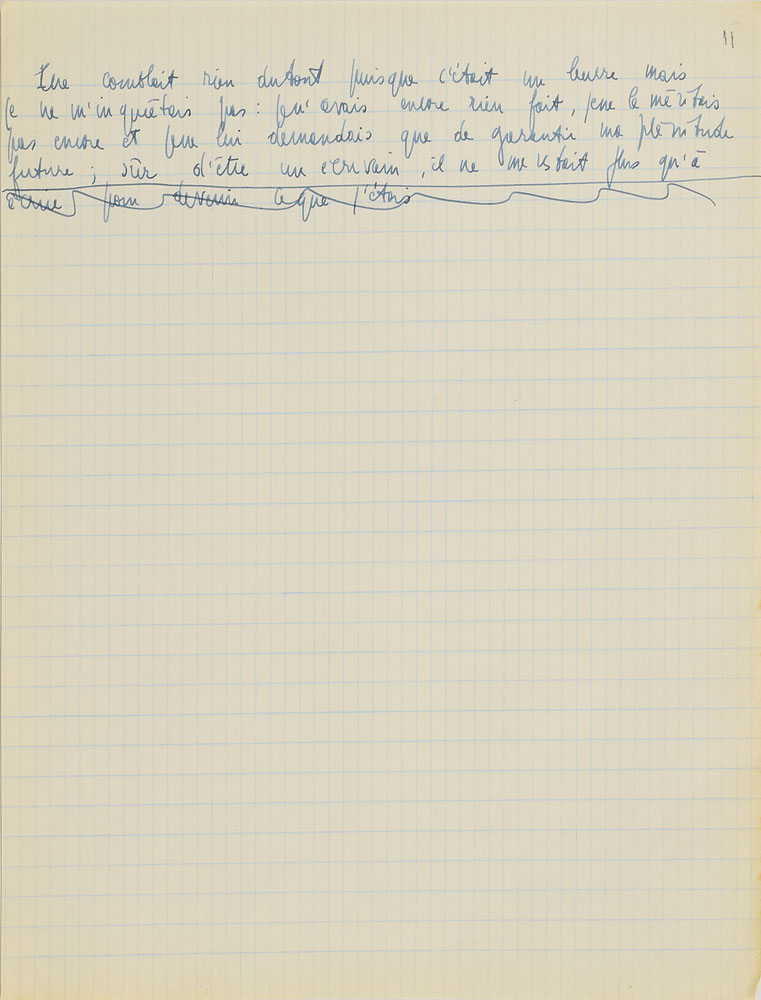 11
Il ne comblait rien du tout puisque c'était un leurre mais
je ne m'inquiétais pas : je n'avais encore rien fait, je ne le méritais
pas encore et je ne lui demandais que de garantir ma plénitude
future ; sûr d'être un écrivain, il ne me restait plus qu'à
écrire pour devenir ce que j'étais